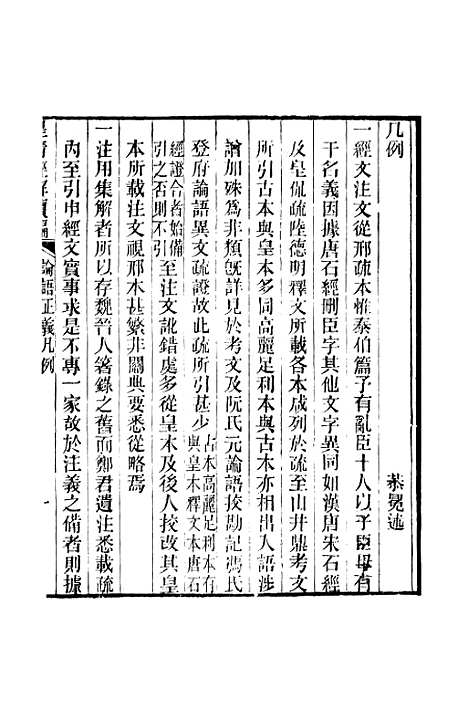 凡例　恭冕述
一經文注文從邢疏本惟泰伯篇予有亂臣十人以子臣母有
干名義因據唐石經刪臣字其他文字異同如漢唐宋石經
及皇侃疏陸德明釋文所載各本咸列於疏至山井鼎考文
所引古本與皇本多同高麗足利本與古本亦相出入語涉
譌加殊爲非類旣詳見於考文及阮氏元論語挍勘記馮氏
登府論語異文疏證故此疏所引甚少古本高麗足利本有
與皇本釋文本唐石
經證合者始備
引之否則不引至注文訛錯處多從皇本及後人挍改其皇
本所載注文視邢本甚繁非關典要悉從略焉
一注用集解者所以存魏晉人箸錄之舊而鄭君遺注悉載疏
內至引申經文實事求是不專一家故於注義之備者則據
皇清經解續編
論語正義凡例
一